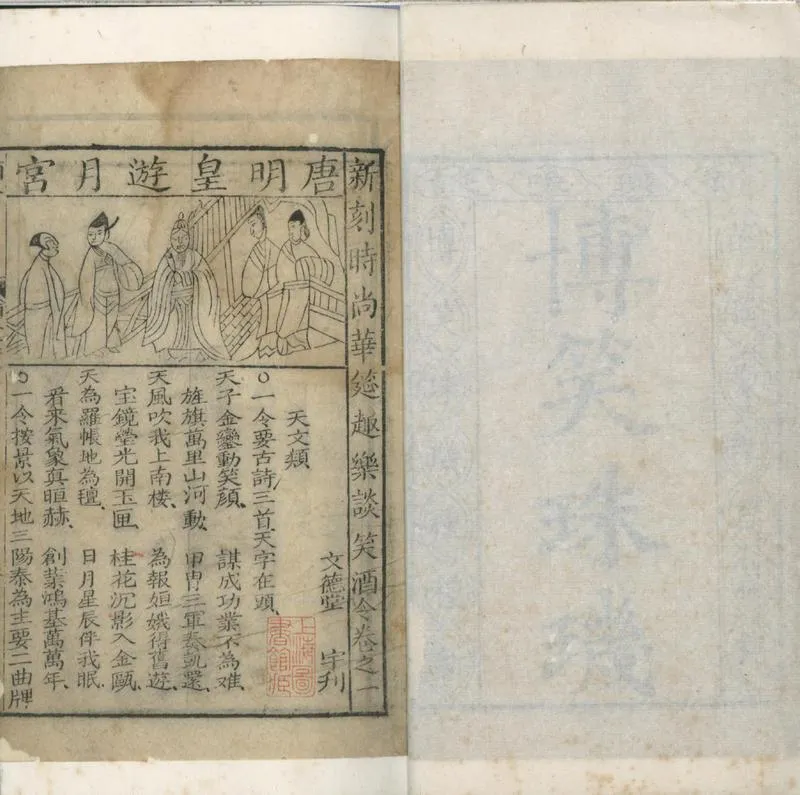 博笑珠璣
新刻時尚華筵趣樂談笑酒令卷之一
唐明皇遊月宮
文德堂 刊
天文類
○一令要古詩三首天字在頭、
天子金鑾動笑顔、 謀成功業不為难、
旌旗萬里山河動、 甲冑三軍奏凱還、
天風吹我上南楼、 為報姮娥得舊遊、
宝鏡瑩光開玉匣、 桂花沉影入金甌、
天為羅帳地為氊、 日月星辰伴我眠、
看來氣象真晅赫、 創業鴻基萬萬年、
○一令按景以天地三陽泰為主要二曲牌
上海圖書館藏